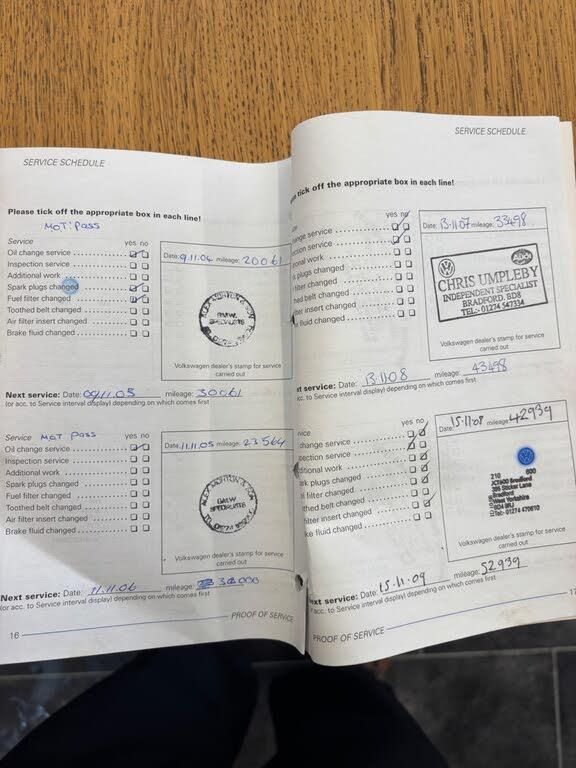 SERVICE SCHEDULE
Please tick off the appropriate box in each line!
MOT: PASS
Service yes no
Oil change service
Inspection service
Additional work
Spark plugs changed
Fuel filter changed
Toothed belt changed
Air filter insert changed
Brake fluid changed
Date: 9.11.04 mileage: 20061
BMW
SPECIALISTS
Volkswagen dealer's stamp for service
carried out
Next service: Date: 09.11.05 mileage: 30061
(or acc. to Service interval display) depending on which comes first
Service MOT PASS yes no
Oil change service
Inspection service
Additional work
Spark plugs changed
Fuel filter changed
Toothed belt changed
Air filter insert changed
Brake fluid changed
Date: 11.11.05 mileage: 23564
ALEX MORTON & SON
BMW
SPECIALISTS
Volkswagen dealer's stamp for service
carried out
Next service: Date: 11.11.06 mileage:
(or acc. to Service interval display) depending on which comes first
16 PROOF OF SERVICE
SERVICE SCHEDULE
tick off the appropriate box in each line!
yes no
change service
ction service
ional work
plugs changed
filter changed
hed belt changed
ilter insert changed
fluid changed
Date: 13.11.07 mileage: 33498
Audi
CHRIS UMPLEBY
INDEPENDENT SPECIALIST
BRADFORD, BD8
TEL:- 01274 547334
Volkswagen dealer's stamp for service
carried out
xt service: Date: 13.11.08 mileage: 43498
acc. to Service interval display) depending on which comes first
rvice yes no
change service
pection service
ditional work
rk plugs changed
filter changed
thed belt changed
filter insert changed
ke fluid changed
Date: 15.11.08 mileage: 42939
210 600
JCT600 Bradford
Sticker Lane
Bradford
West Yorkshire
BD4 8RJ
Tel: 01274 470610
Volkswagen dealer's stamp for service
carried out
ext service: Date: 15.11.09 mileage: 52939
r acc. to Service interval display) depending on which comes first
PROOF OF SERVICE